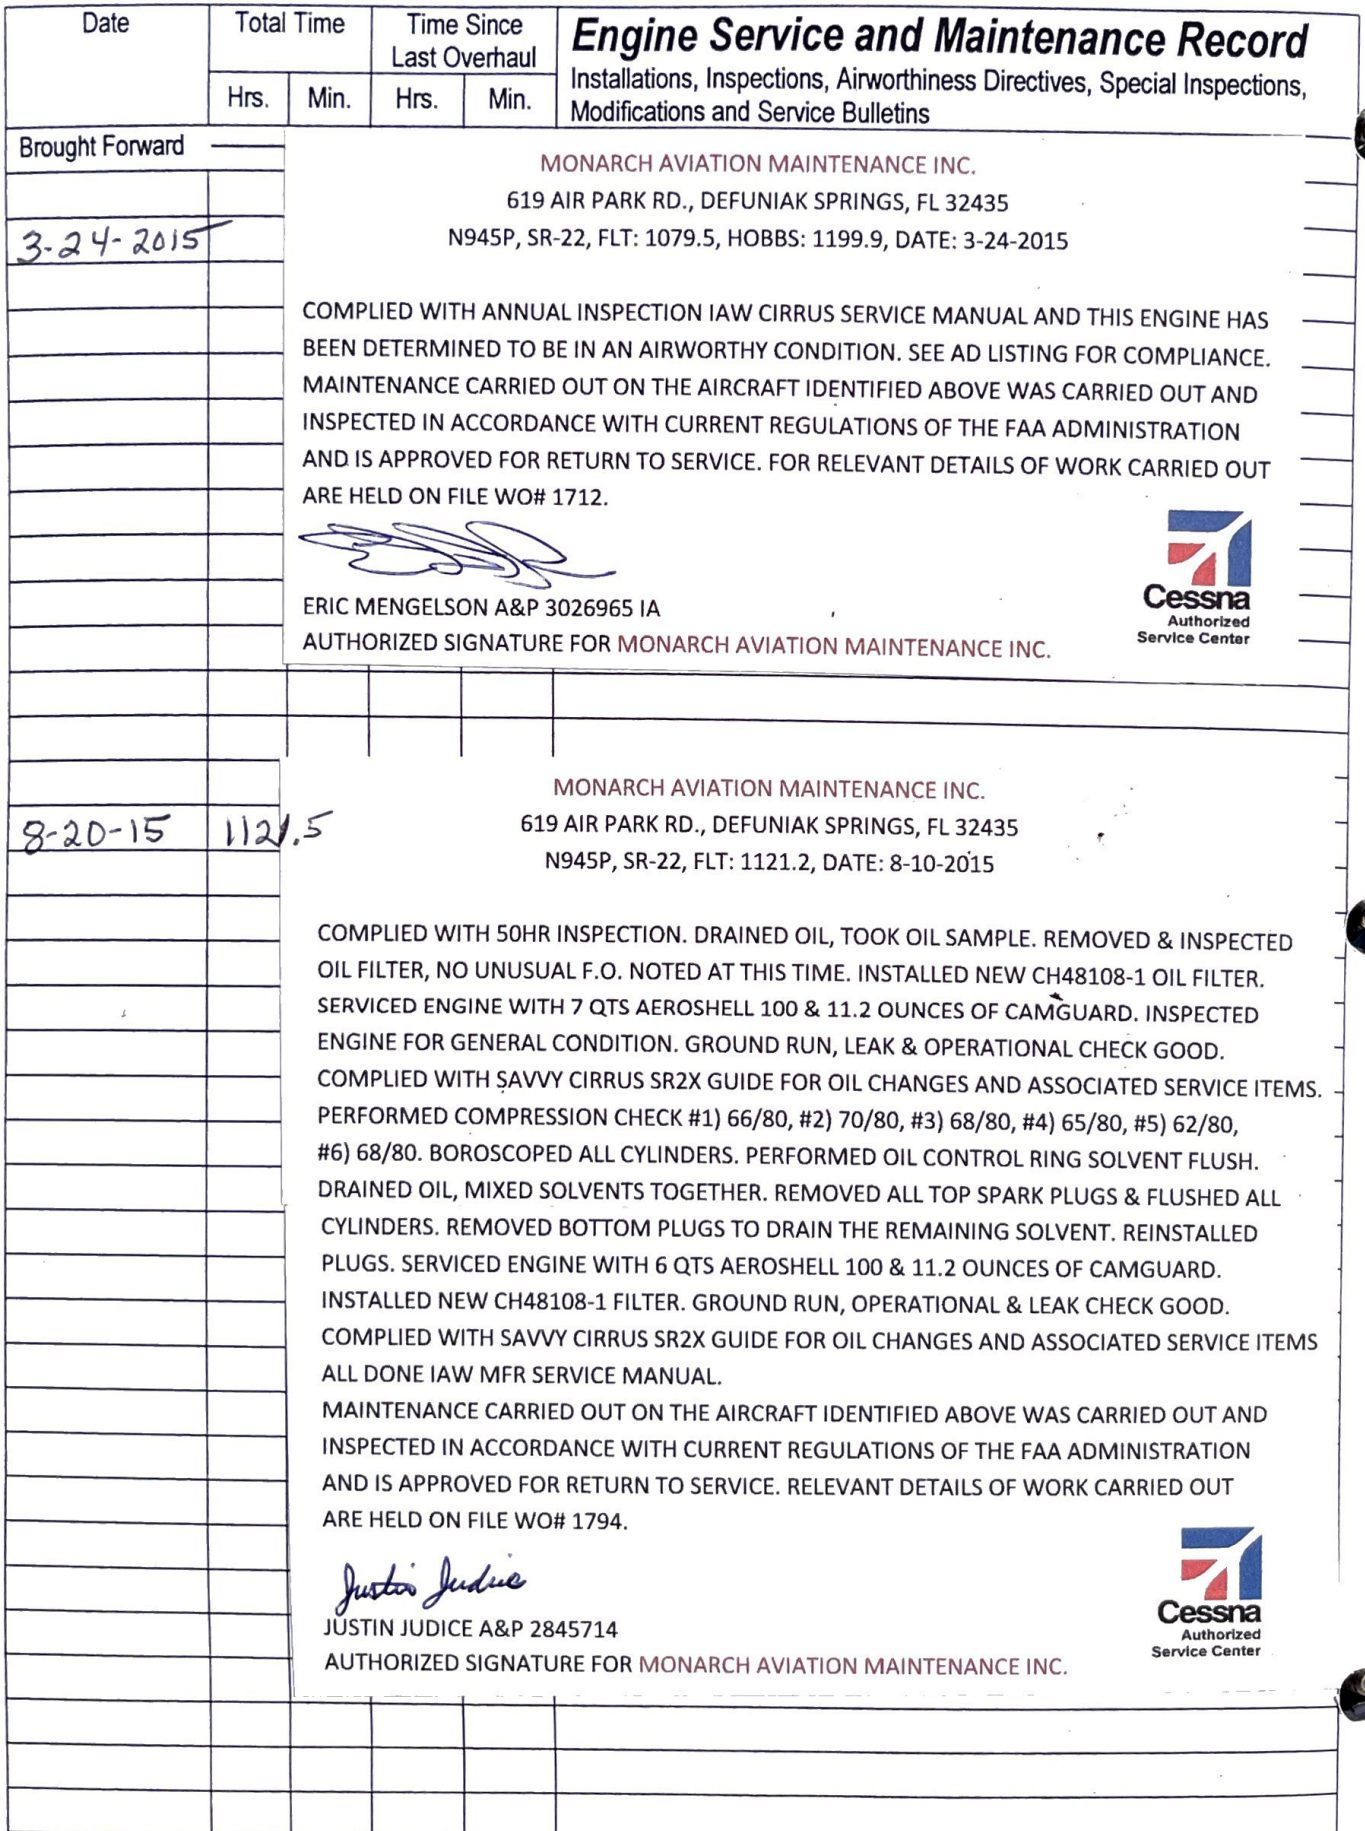 Date
Total Time
Time Since
Last Overhaul
Hrs.
Min.
Hrs.
Min.
Engine Service and Maintenance Record
Installations, Inspections, Airworthiness Directives, Special Inspections,
Modifications and Service Bulletins
Brought Forward
MONARCH AVIATION MAINTENANCE INC.
619 AIR PARK RD., DEFUNIAK SPRINGS, FL 32435
3-24-2015
N945P, SR-22, FLT: 1079.5, HOBBS: 1199.9, DATE: 3-24-2015
COMPLIED WITH ANNUAL INSPECTION IAW CIRRUS SERVICE MANUAL AND THIS ENGINE HAS
BEEN DETERMINED TO BE IN AN AIRWORTHY CONDITION. SEE AD LISTING FOR COMPLIANCE.
MAINTENANCE CARRIED OUT ON THE AIRCRAFT IDENTIFIED ABOVE WAS CARRIED OUT AND
INSPECTED IN ACCORDANCE WITH CURRENT REGULATIONS OF THE FAA ADMINISTRATION
AND IS APPROVED FOR RETURN TO SERVICE. FOR RELEVANT DETAILS OF WORK CARRIED OUT
ARE HELD ON FILE WO# 1712.
ERIC MENGELSON A&P 3026965 IA
AUTHORIZED SIGNATURE FOR MONARCH AVIATION MAINTENANCE INC.
Cessna
Authorized
Service Center
MONARCH AVIATION MAINTENANCE INC.
8-20-15 1121.5
619 AIR PARK RD., DEFUNIAK SPRINGS, FL 32435
N945P, SR-22, FLT: 1121.2, DATE: 8-10-2015
COMPLIED WITH 50HR INSPECTION. DRAINED OIL, TOOK OIL SAMPLE. REMOVED & INSPECTED
OIL FILTER, NO UNUSUAL F.O. NOTED AT THIS TIME. INSTALLED NEW CH48108-1 OIL FILTER.
SERVICED ENGINE WITH 7 QTS AEROSHELL 100 & 11.2 OUNCES OF CAMGUARD. INSPECTED
ENGINE FOR GENERAL CONDITION. GROUND RUN, LEAK & OPERATIONAL CHECK GOOD.
COMPLIED WITH SAVVY CIRRUS SR2X GUIDE FOR OIL CHANGES AND ASSOCIATED SERVICE ITEMS.
PERFORMED COMPRESSION CHECK #1) 66/80, #2) 70/80, #3) 68/80, #4) 65/80, #5) 62/80,
#6) 68/80. BOROSCOPED ALL CYLINDERS. PERFORMED OIL CONTROL RING SOLVENT FLUSH.
DRAINED OIL, MIXED SOLVENTS TOGETHER. REMOVED ALL TOP SPARK PLUGS & FLUSHED ALL
CYLINDERS. REMOVED BOTTOM PLUGS TO DRAIN THE REMAINING SOLVENT. REINSTALLED
PLUGS. SERVICED ENGINE WITH 6 QTS AEROSHELL 100 & 11.2 OUNCES OF CAMGUARD.
INSTALLED NEW CH48108-1 FILTER. GROUND RUN, OPERATIONAL & LEAK CHECK GOOD.
COMPLIED WITH SAVVY CIRRUS SR2X GUIDE FOR OIL CHANGES AND ASSOCIATED SERVICE ITEMS
ALL DONE IAW MFR SERVICE MANUAL.
MAINTENANCE CARRIED OUT ON THE AIRCRAFT IDENTIFIED ABOVE WAS CARRIED OUT AND
INSPECTED IN ACCORDANCE WITH CURRENT REGULATIONS OF THE FAA ADMINISTRATION
AND IS APPROVED FOR RETURN TO SERVICE. RELEVANT DETAILS OF WORK CARRIED OUT
ARE HELD ON FILE WO# 1794.
Justin Judice
JUSTIN JUDICE A&P 2845714
AUTHORIZED SIGNATURE FOR MONARCH AVIATION MAINTENANCE INC.
Cessna
Authorized
Service Center